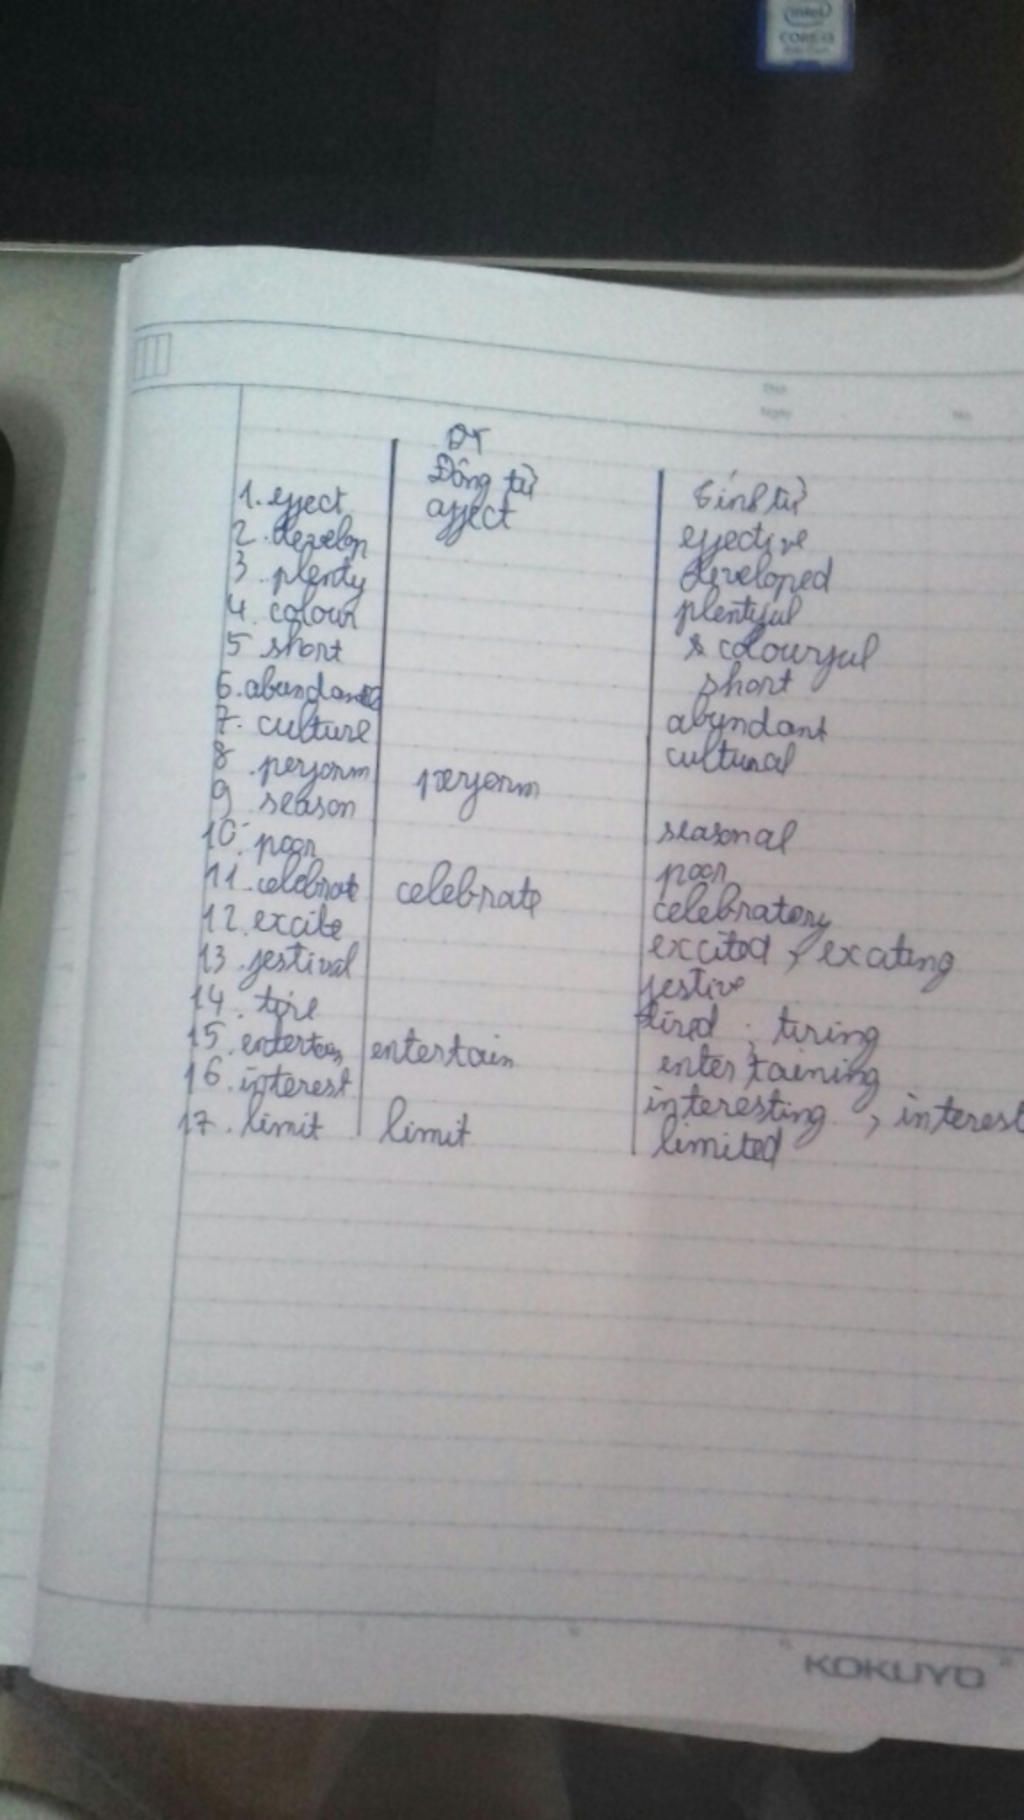 intel
CORE i3
Thứ
Ngày No.
ĐT
Động từ Tính từ
1. effect affect effective
2. develop developed
3. plenty plentiful
4. colour colourful
5 short short
6. abundant
7. culture abundant
8. perform perform cultural
9 season seasonal
10. poor poor
11. celebrate celebrate celebratory
12. excite excited, exciting
13. festival festive
14. tire tired, tiring
15. entertain entertain entertaining
16. interest interesting, interest
17. limit limit limited
KOKUYO